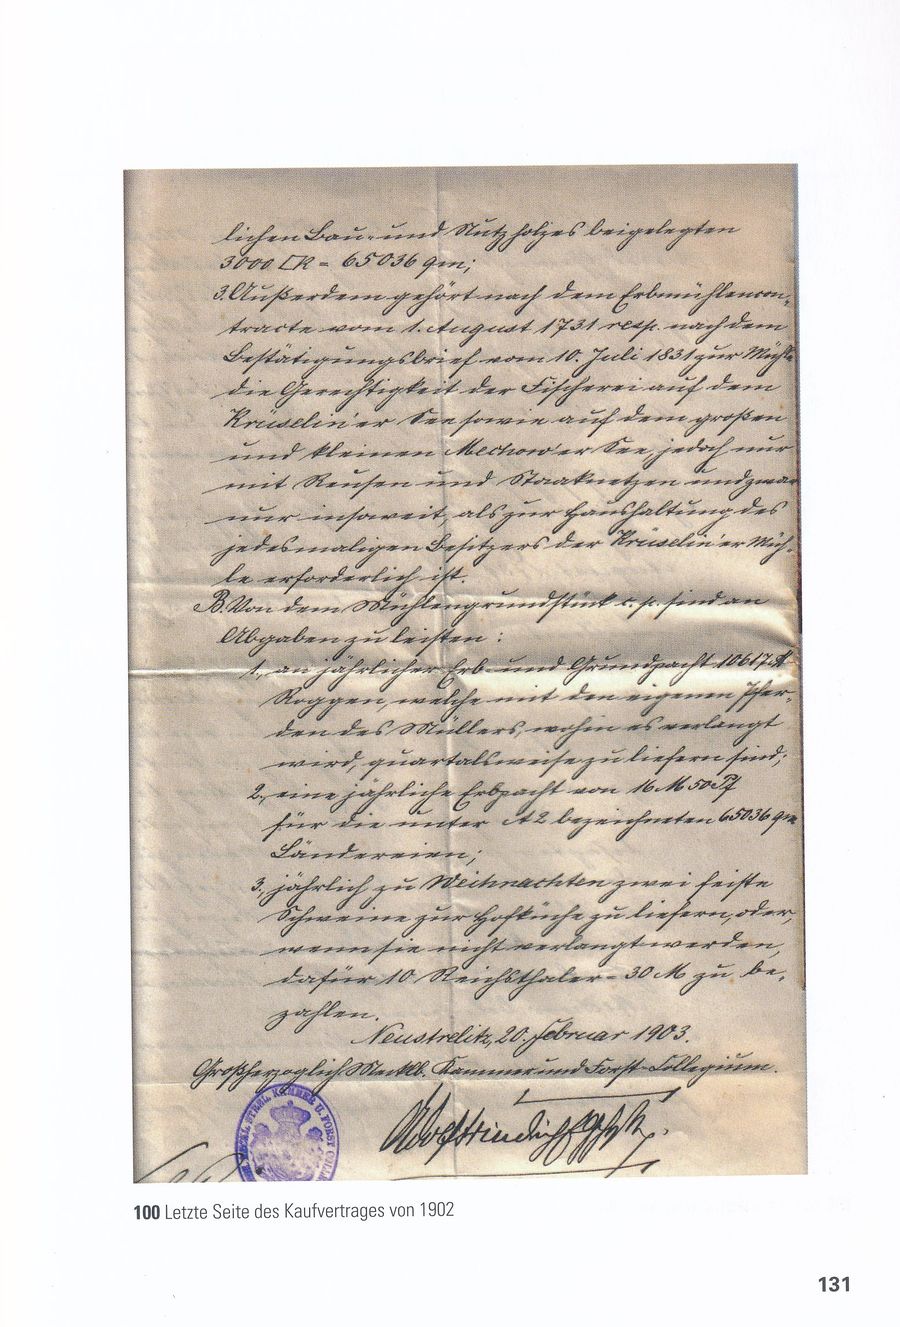 lichen Bau- und Nutzholzes beigelegten
3000 □R = 65036 qm;
3. Außerdem gehört nach dem Erbmühlencon-
tracte vom 1. August 1731 resp. nach dem
Bestätigungsbrief vom 10. Juli 1831 zur Mühle
die Gerechtigkeit der Fischerei auf dem
Krüselin'er See sowie auf dem großen
und kleinen Mechow'er See, jedoch nur
mit Reusen und Staaknetzen und zwar
nur insoweit, als zur Haushaltung des
jedesmaligen Besitzers der Krüselin'er Müh-
le erforderlich ist.
B. Von dem Mühlengrundstück c. p. sind an
Abgaben zu leisten:
1., an jährlicher Erb- und Grundpacht 10617 ℔
Roggen, welche mit den eigenen Pfer-
den des Müllers, wohin es verlangt
wird, quartalsweise zu liefern sind;
2., eine jährliche Erbpacht von 16 M 50 Pf
für die unter A 2 bezeichneten 65036 qm
Ländereien;
3., jährlich zu Weihnachten zwei feiste
Schweine zur Hofküche zu liefern, oder,
wenn sie nicht verlangt werden,
dafür 10 Reichsthaler = 30 M zu be-
zahlen.
Neustrelitz, 20. Februar 1903.
Großherzoglich Meckl. Kammer und Forst-Collegium.
STREL. KAMMER U. FORST COLL
100 Letzte Seite des Kaufvertrages von 1902
131